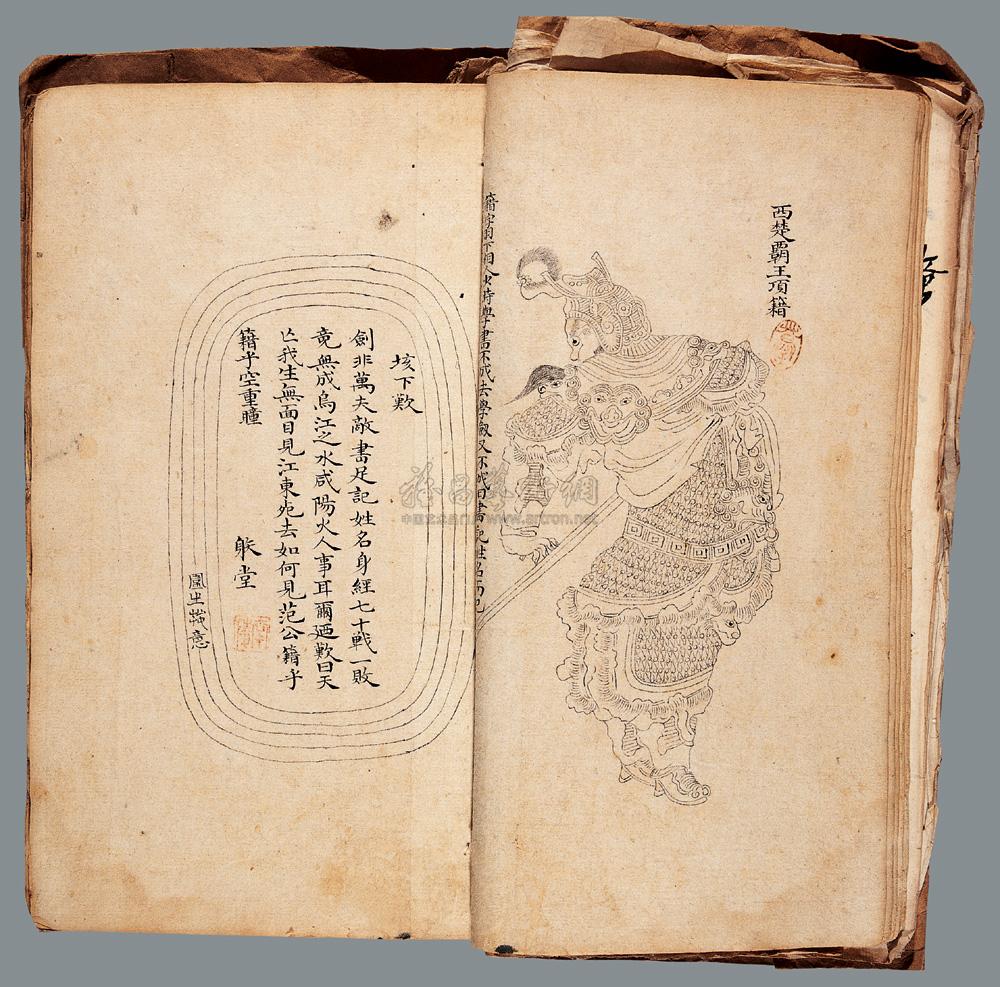 西楚霸王項籍
籍字羽下相人少時學書不成去學劔又不成曰書記姓名而已
垓下歎
劍非萬夫敵書足記姓名身經七十戰一敗
竟無成烏江之水咸陽火人事耳爾廼歎曰天
亾我生無面目見江東死去如何見范公籍乎
籍乎空重瞳
堂
雅昌藝術網
www.artron.net